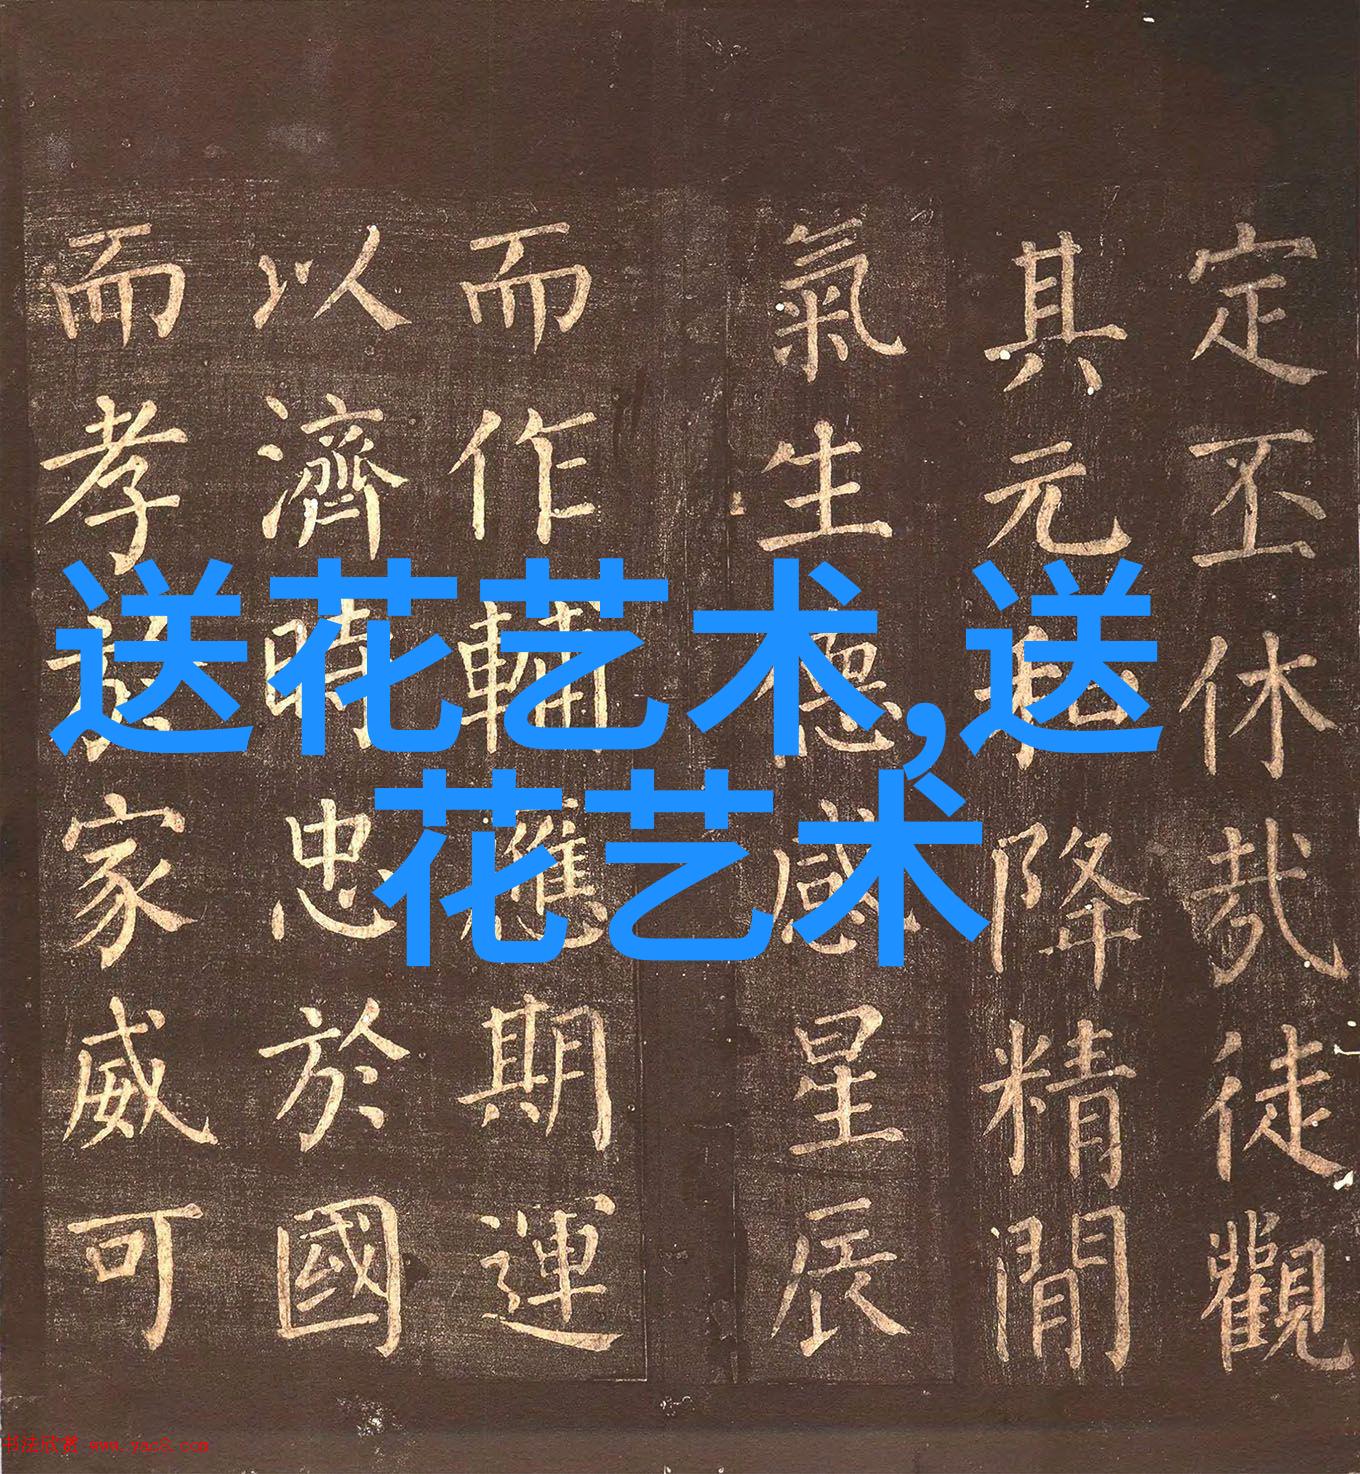 送花艺术,送
花艺术
定丕休哉徒觀
其元和降精閒
氣生德感星辰
而作輔應期運
以濟時忠於國
而孝於家威可
书法欣赏 www.yac8.com